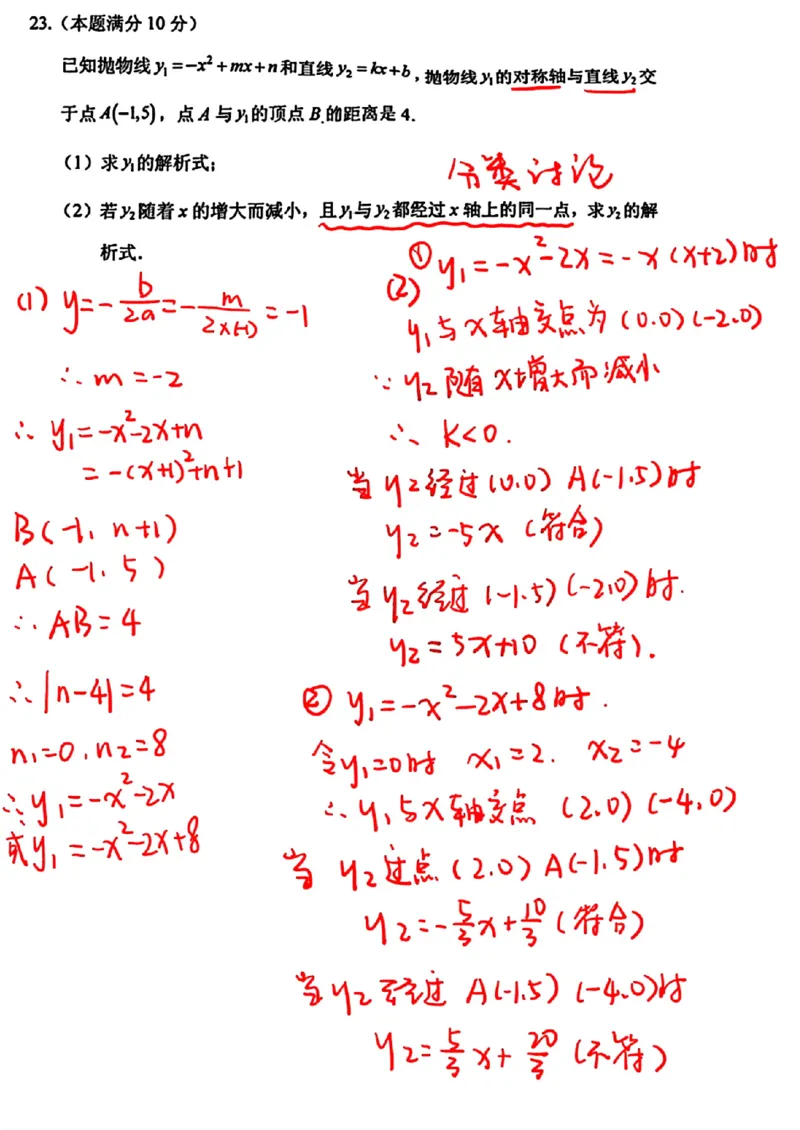 23.（本题满分 10 分）
已知抛物线 y₁=-x²+mx+n 和直线 y₂=kx+b，抛物线 y₁ 的对称轴与直线 y₂ 交
于点 A(-1,5)，点 A 与 y₁ 的顶点 B 的距离是 4.
（1）求 y₁ 的解析式;
（2）若 y₂ 随着 x 的增大而减小，且 y₁ 与 y₂ 都经过 x 轴上的同一点，求 y₂ 的解
析式.
分类讨论
(1) y=-b/2a=-m/2×(-1)=-1
∴m=-2
∴y₁=-x²-2x+n
=-(x+1)²+n+1
B(-1, n+1)
A(-1, 5)
∴AB=4
∴|n-4|=4
n₁=0, n₂=8
∴y₁=-x²-2x
或y₁=-x²-2x+8
(2) ① y₁=-x²-2x=-x(x+2)时
y₁与x轴交点为(0.0)(-2.0)
∵y₂随x增大而减小
∴K<0.
当y₂经过(0.0) A(-1.5)时
y₂=-5x (符合)
当y₂经过(-1.5)(-2,0)时.
y₂=5x+10 (不符).
② y₁=-x²-2x+8时.
令y₁=0时 x₁=2. x₂=-4
∴y₁与x轴交点 (2.0)(-4.0)
当y₂过点(2.0) A(-1.5)时
y₂=-5/3x+10/3 (符合)
当y₂经过 A(-1.5) (-4.0)时
y₂=5/3x+20/3 (不符)